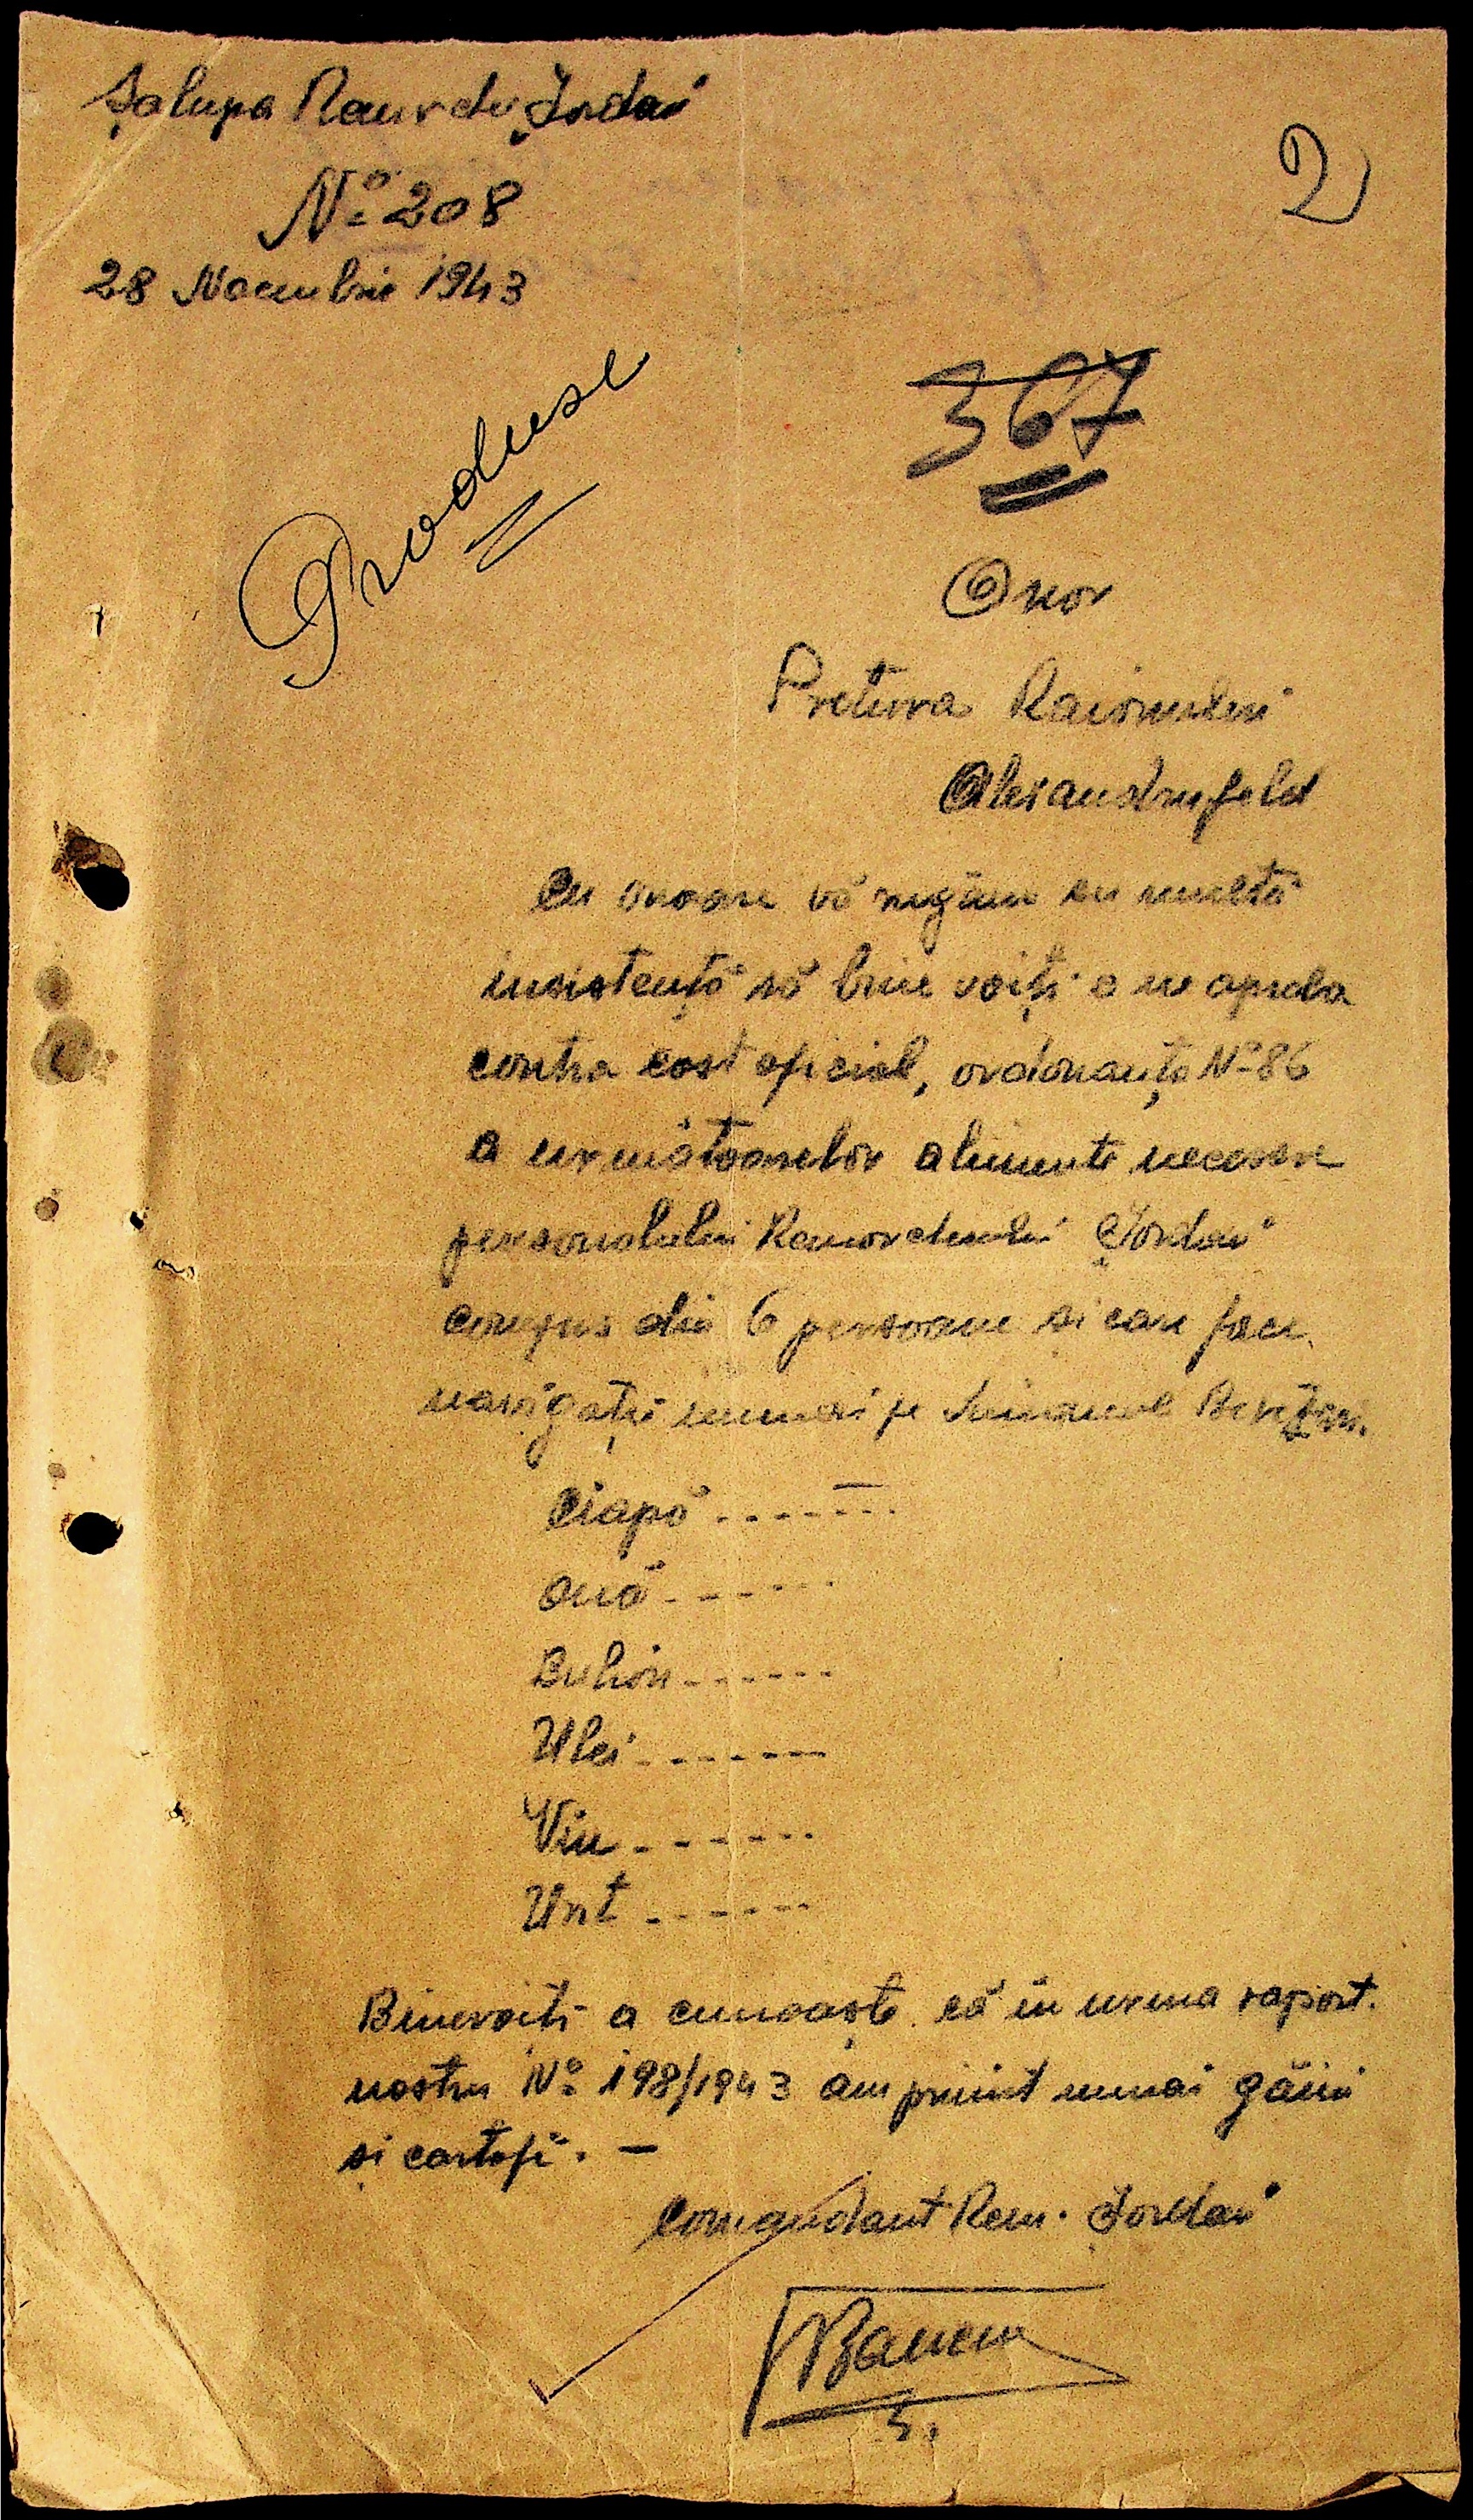 Șalupa Remorcher „Iordan”
Nº 208
2
28 Noembrie 1943
Produse
367
Onor
Pretura Raionului
Alexandrufeld
Cu onoare vă rugăm cu multă
insistență să bine voiți a ne aproba
contra cost oficial, ordonanța Nº 86
a următoarelor alimente necesare
personalului Remorcherului „Iordan”
compus din 6 persoane și care face
navigație numai pe Limanul Berezan.
Ciapă
Ouă
Bulion
Ulei
Vin
Unt
Binevoiți a cunoaște că în urma raport.
nostru Nº 198/1943 am primit numai găini
și cartofi. —
Comandant Rem. „Iordan”